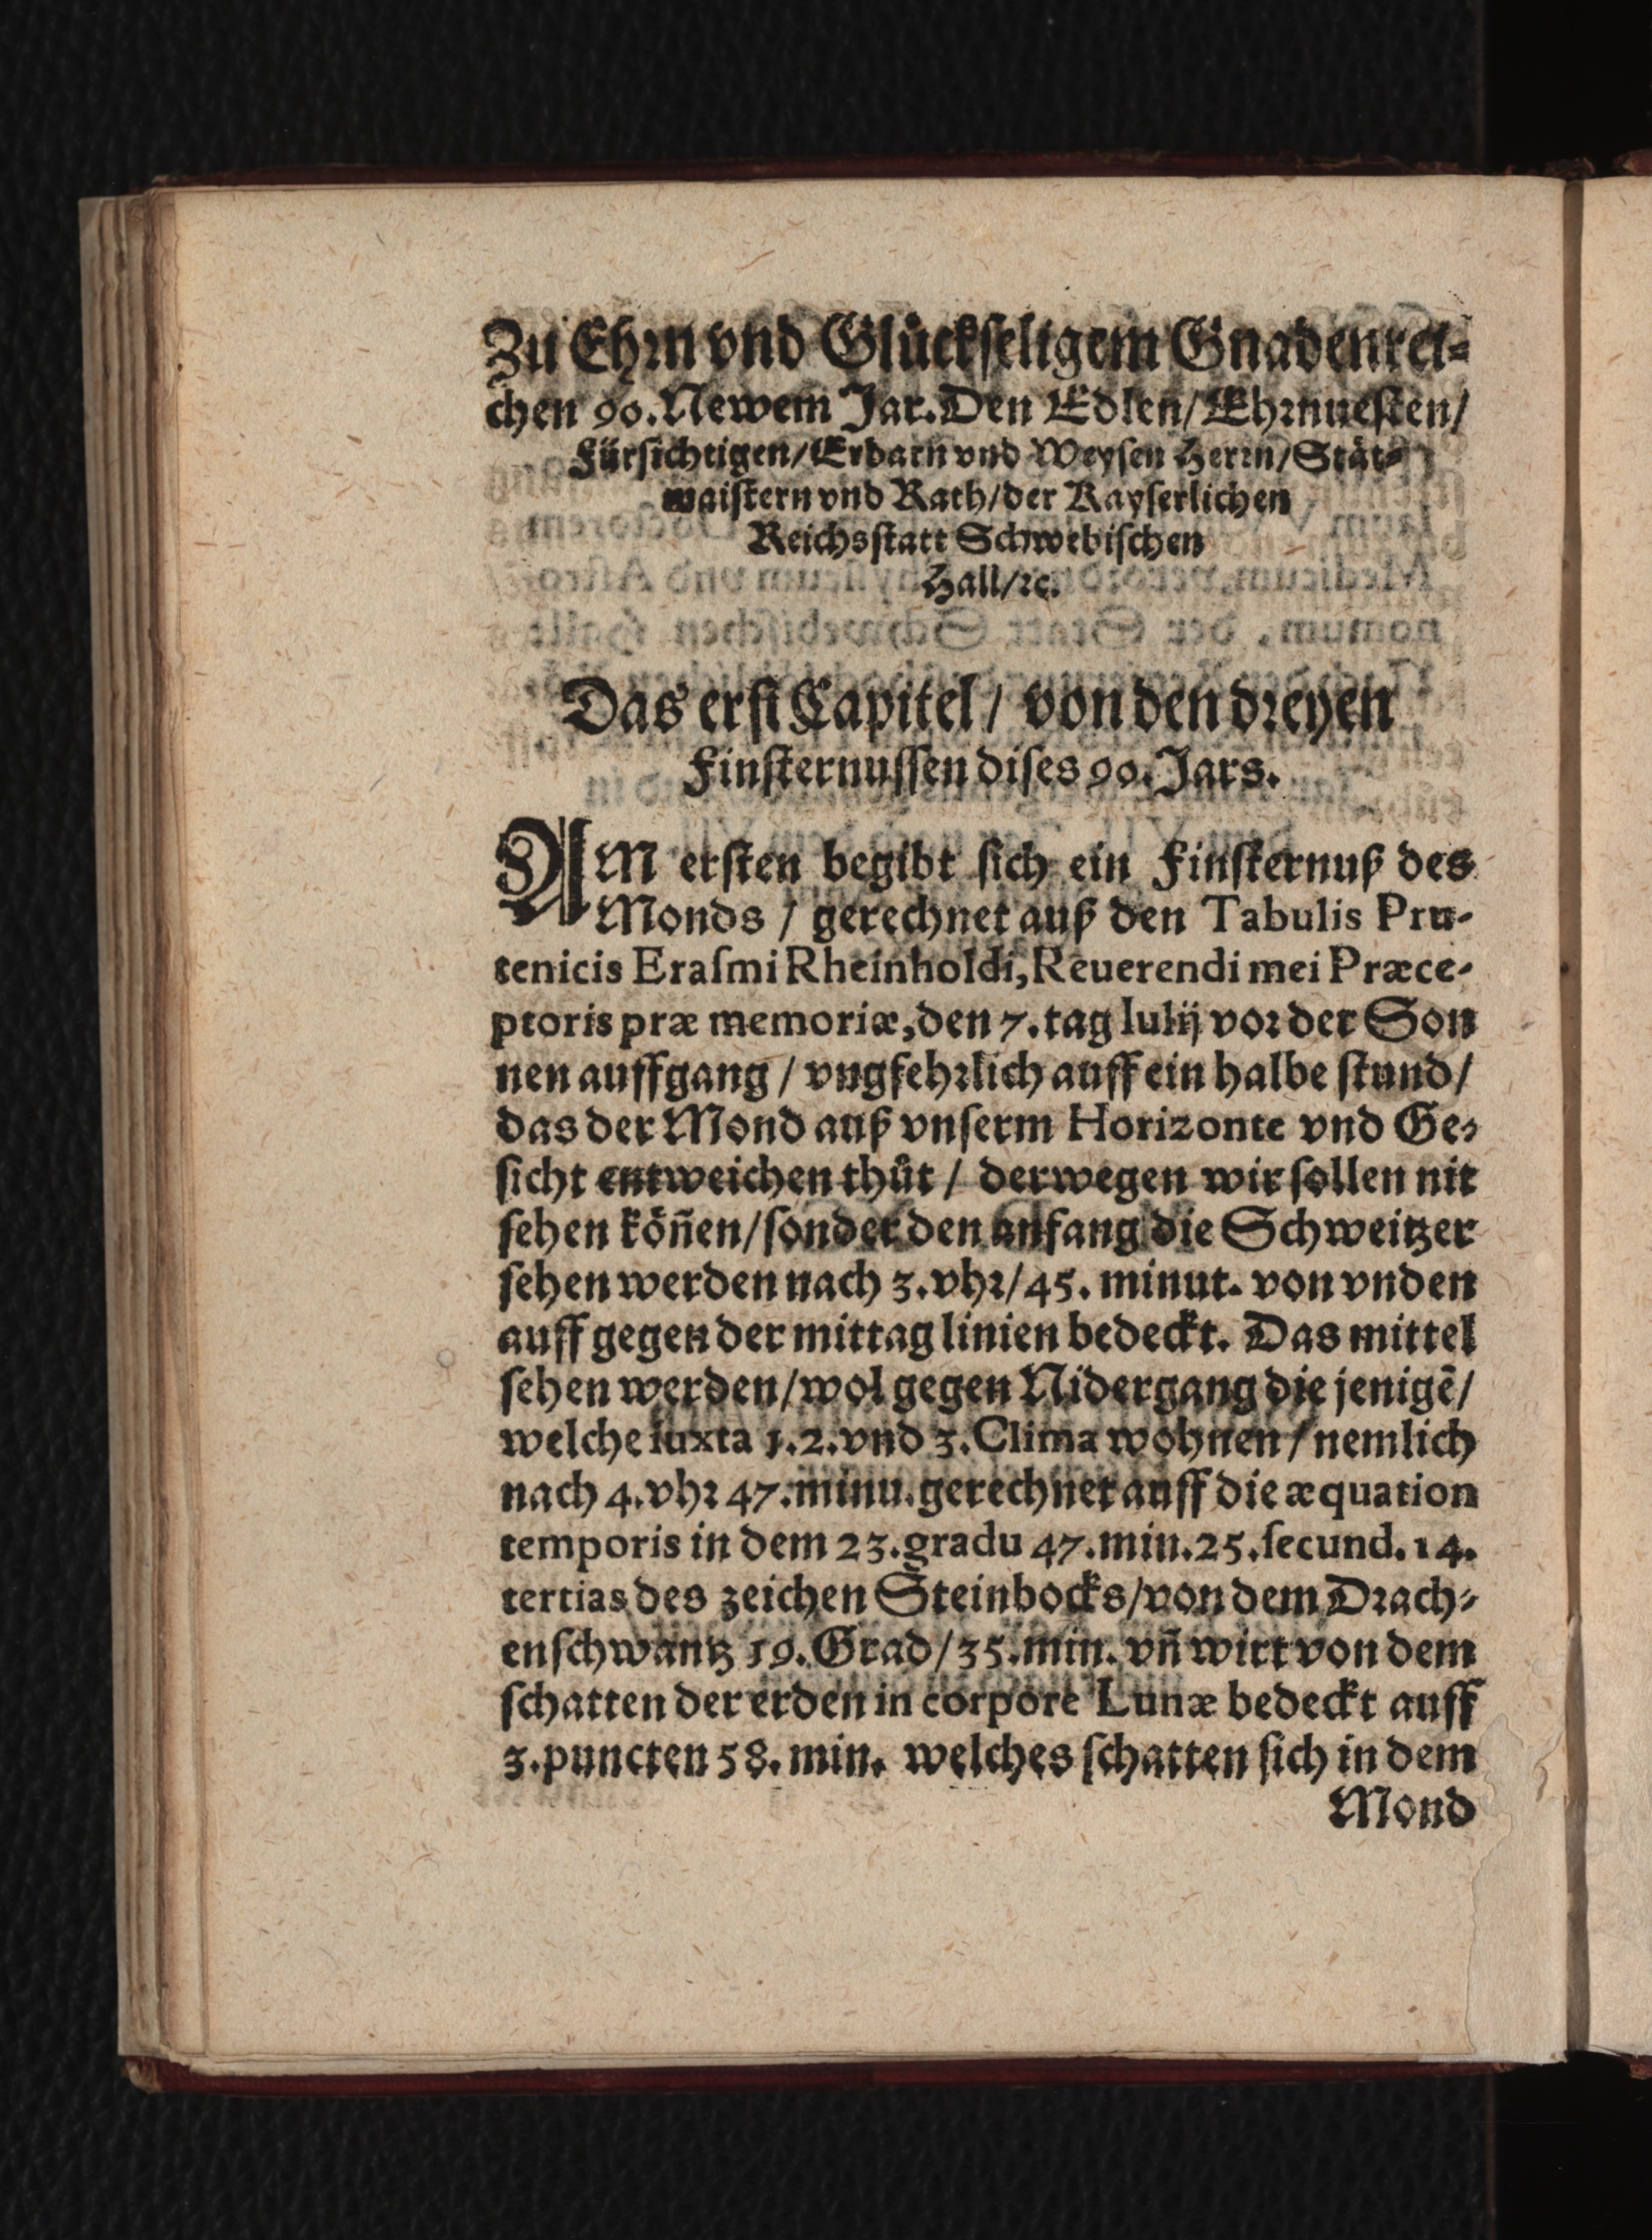 Zu Ehrn vnd Glůckſeligem Gnadenrei⸗
chen 90. Newem Jar. Den Edlen/ Ehrnueſten/
Fürſichtigen/ Erbarn vnd Weyſen Herrn/ Stät⸗
maiſtern vnd Rath/ der Kayſerlichen
Reichsſtatt Schwebiſchen
Hall/ ꝛc.
Das erſt Capitel/ von den dreyen
Finſternuſſen diſes 90. Jars.
AM erſten begibt ſich ein Finſternuß des
Monds / gerechnet auß den Tabulis Pru-
tenicis Eraſmi Rheinholdi, Reuerendi mei Præce-
ptoris præ memoriæ, den 7. tag Iulij vor der Son
nen auffgang / vngfehrlich auff ein halbe ſtund/
das der Mond auß vnſerm Horizonte vnd Ge⸗
ſicht entweichen thůt / derwegen wir ſollen nit
ſehen köñen/ ſonder den anfang die Schweitzer
ſehen werden nach 3. vhr/ 45. minut. von vnden
auff gegen der mittag linien bedeckt. Das mittel
ſehen werden/ wol gegen Nidergang die jenigē/
welche iuxta 1. 2. vnd 3. Clima wohnen / nemlich
nach 4. vhr 47. minu. gerechnet auff die æquation
temporis in dem 23. gradu 47. min. 25. ſecund. 14.
tertias des zeichen Steinbocks/ von dem Drach⸗
enſchwantz 19. Grad/ 35. min. vñ wirt von dem
ſchatten der erden in corpore Lunæ bedeckt auff
3. puncten 58. min. welches ſchatten ſich in dem
Mond